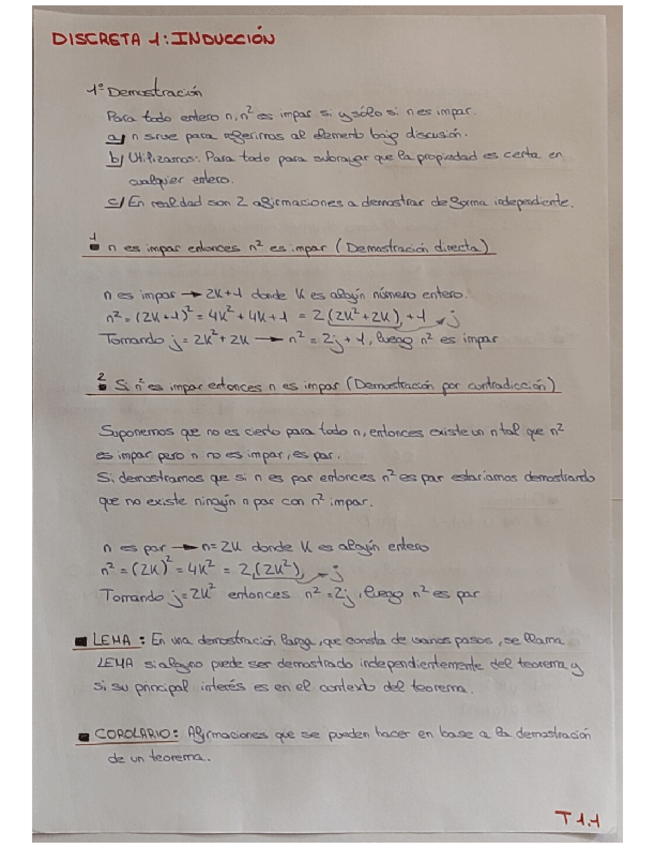 DISCRETA 1: INDUCCIÓN
1º Demostración
Para todo entero n, n² es impar si y sólo si n es impar.
a) n sirve para referirnos al elemento bajo discusión.
b) Utilizamos: Para todo para subrayar que la propiedad es certa en
cualquier entero.
c) En realdad son 2 afirmaciones a demostrar de forma independiente.
1 n es impar entonces n² es impar (Demostración directa)
n es impar → 2K+1 donde K es algún número entero.
n² = (2K+1)² = 4K² + 4K+1 = 2(2K²+2K)+1 j
Tomando j = 2K²+2K → n² = 2j+1, luego n² es impar
2 Si n² es impar entonces n es impar (Demostración por contradicción)
Suponemos que no es cierto para todo n, entonces existe un n tal que n²
es impar pero n no es impar, es par.
Si demostramos que si n es par entonces n² es par estaríamos demostrando
que no existe ningún n par con n² impar.
n es par → n=2K donde K es algún entero
n² = (2K)² = 4K² = 2(2K²) j
Tomando j=2K² entonces n²=2j, luego n² es par
LEMA: En una demostración larga, que consta de varios pasos, se llama
LEMA si alguno puede ser demostrado independientemente del teorema y
si su principal interés es en el contexto del teorema.
COROLARIO: Afirmaciones que se pueden hacer en base a la demostración
de un teorema.
T 1.1